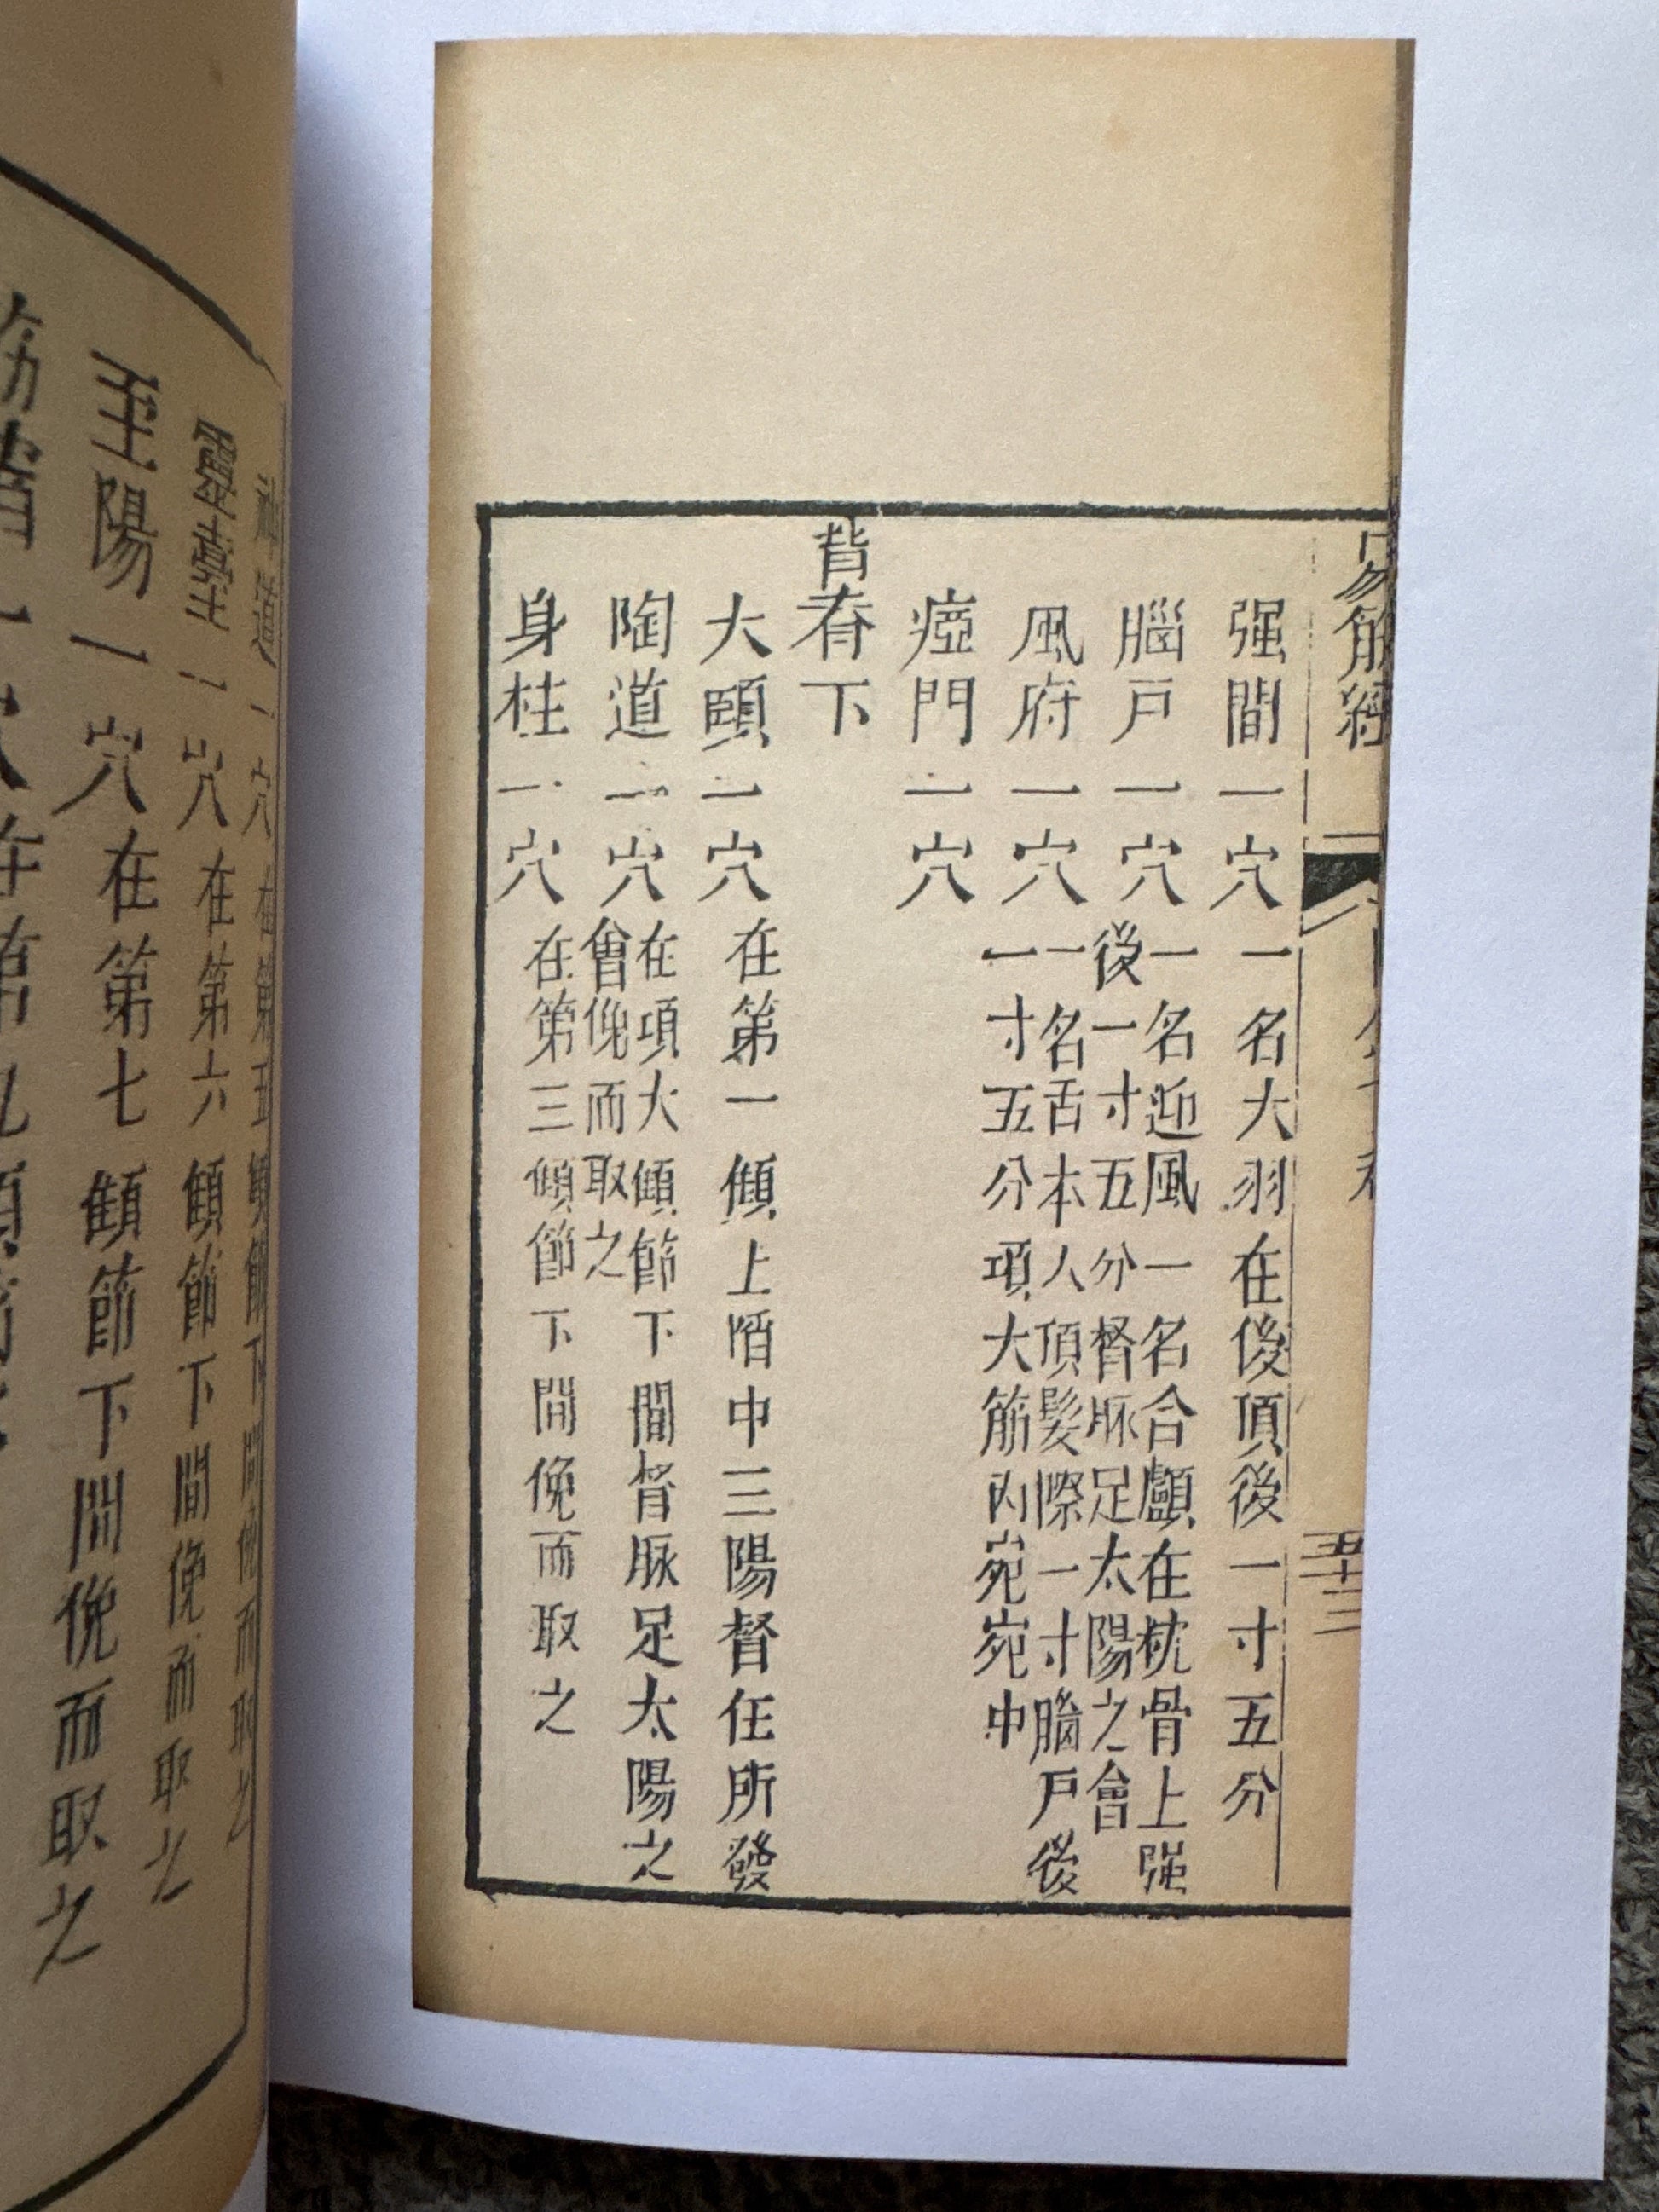 易筋經
强間一穴一名大羽在後頂後一寸五分
腦戶一穴一名迎風一名合顱在枕骨上强
後一寸五分督脉足太陽之會
風府一穴一名舌本人頂髮際一寸腦戶後
一寸五分項大筋內宛宛中
瘂門一穴
背脊下
大頤一穴在第一傾上陷中三陽督任所發
陶道一穴在項大傾節下間督脉足太陽之
會俛而取之
身柱一穴在第三傾節下間俛而取之
神道一穴在第五傾節下間俛而取之
靈臺一穴在第六傾節下間俛而取之
至陽一穴在第七傾節下間俛而取之
筋縮一穴在第九傾節